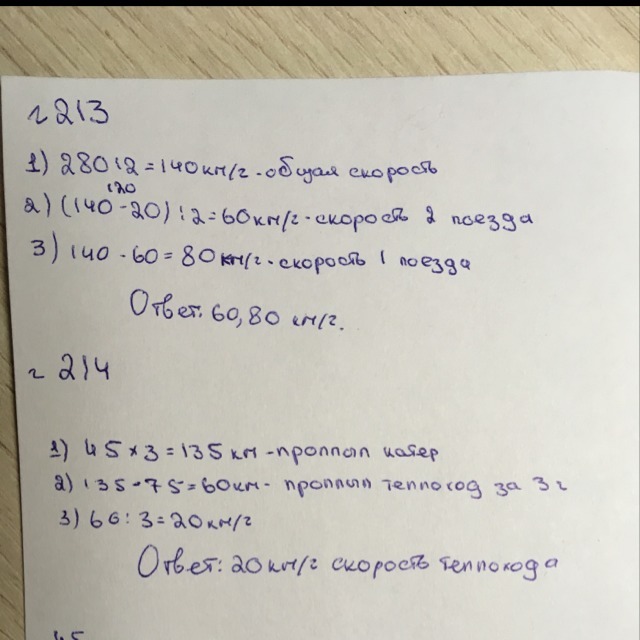 г 213
1) 280:2=140км/г-общая скорость
120
2) (140-20):2=60км/г-скорость 2 поезда
3) 140-60=80км/г-скорость 1 поезда
Ответ: 60,80 км/г.
г 214
1) 45×3=135км-проплыл катер
2) 135-75=60км- проплыл теплоход за 3 г
3) 60:3=20км/г
Ответ: 20км/г скорость теплохода